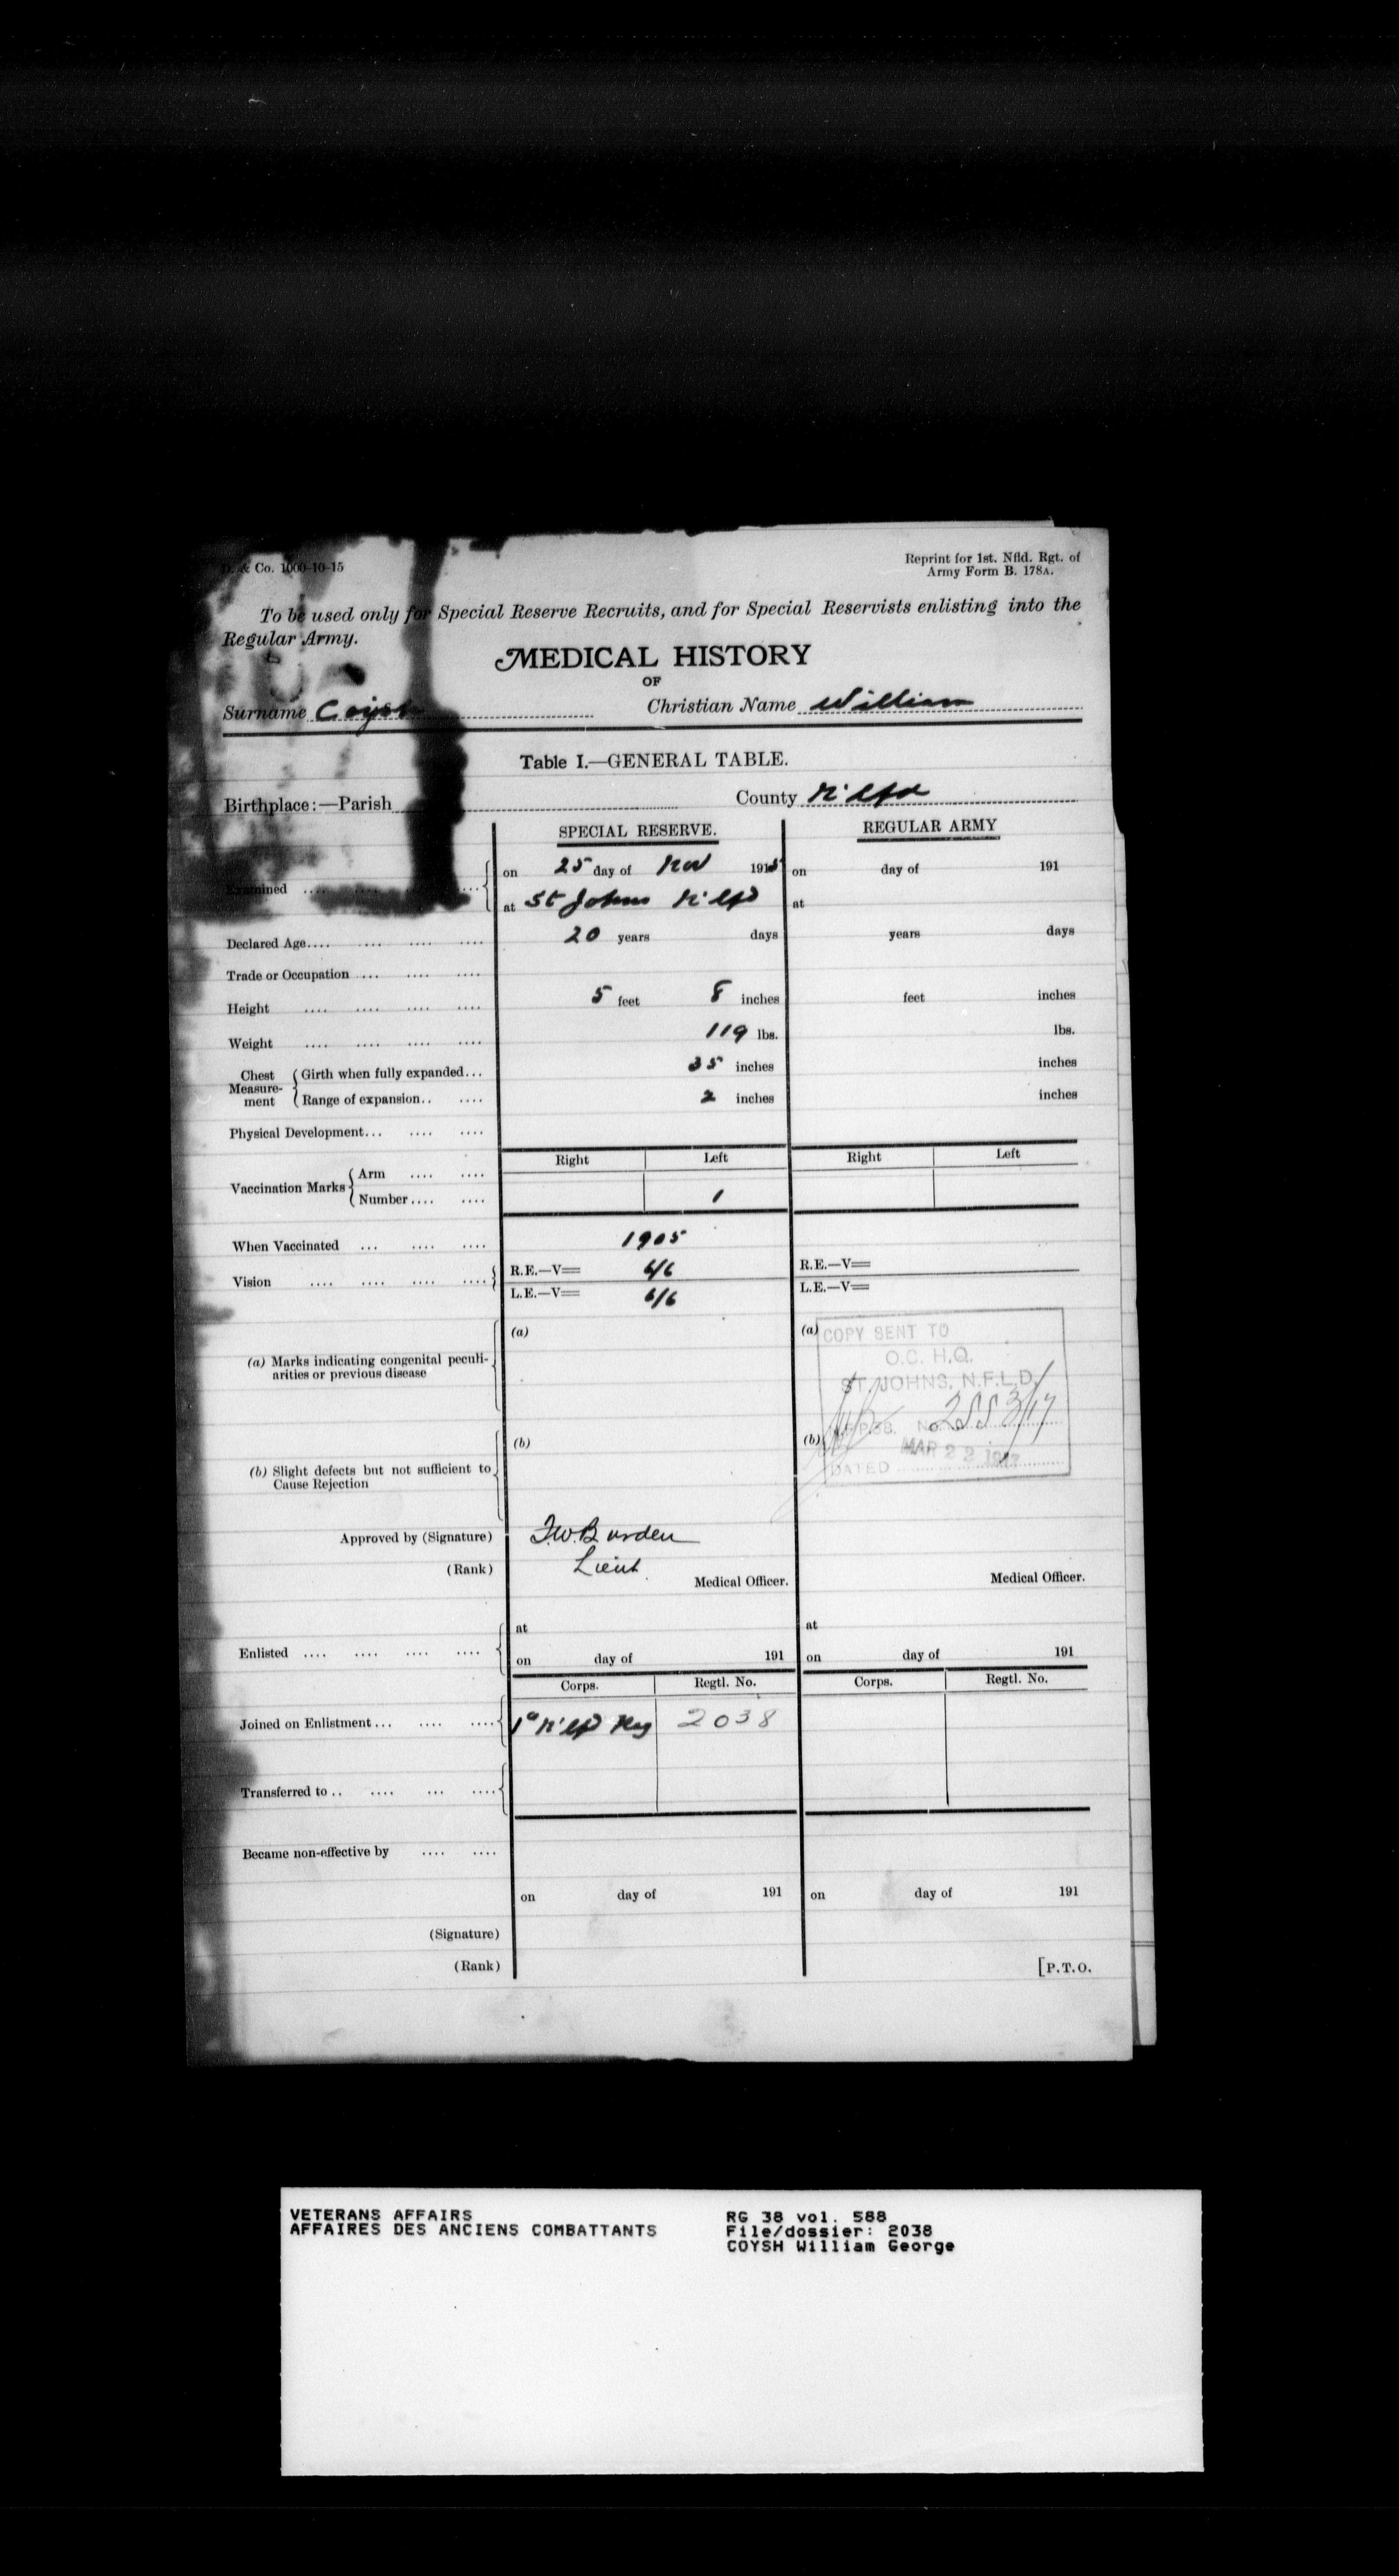 D. & Co. 1000-10-15
Reprint for 1st. Nfld. Rgt. of
Army Form B. 178A.
To be used only for Special Reserve Recruits, and for Special Reservists enlisting into the
Regular Army.
MEDICAL HISTORY
OF
Surname Coysh Christian Name William
Table I.—GENERAL TABLE.
Birthplace:—Parish County N'fld
SPECIAL RESERVE. REGULAR ARMY
Examined .... on 25 day of Nov 1915 on day of 191
at St Johns N'fld at
Declared Age.... .... .... .... 20 years days years days
Trade or Occupation .... .... ....
Height .... .... .... .... 5 feet 8 inches feet inches
Weight .... .... .... .... 119 lbs. lbs.
Chest Measurement Girth when fully expanded... 35 inches inches
Range of expansion.. .... 2 inches inches
Physical Development... .... ....
Right Left Right Left
Vaccination Marks Arm .... ....
Number.... .... 1
When Vaccinated ... .... .... 1905
Vision .... .... .... .... R.E.—V= 6/6 R.E.—V=
L.E.—V= 6/6 L.E.—V=
(a) Marks indicating congenital peculi-
arities or previous disease
(a) (a)
COPY SENT TO
O.C. H.Q.
ST. JOHNS, N.F.L.D.
No. 2553/17
DATED MAR 22 1917
(b) Slight defects but not sufficient to
Cause Rejection
(b) (b)
Approved by (Signature) F.W. Burden
(Rank) Lieut.
Medical Officer. Medical Officer.
Enlisted .... .... .... .... at at
on day of 191 on day of 191
Corps. Regtl. No. Corps. Regtl. No.
Joined on Enlistment... .... .... 1st N'fld Reg 2038
Transferred to .. .... ... ....
Became non-effective by .... ....
on day of 191 on day of 191
(Signature)
(Rank)
[P.T.O.
VETERANS AFFAIRS
AFFAIRES DES ANCIENS COMBATTANTS
RG 38 vol. 588
File/dossier: 2038
COYSH William George